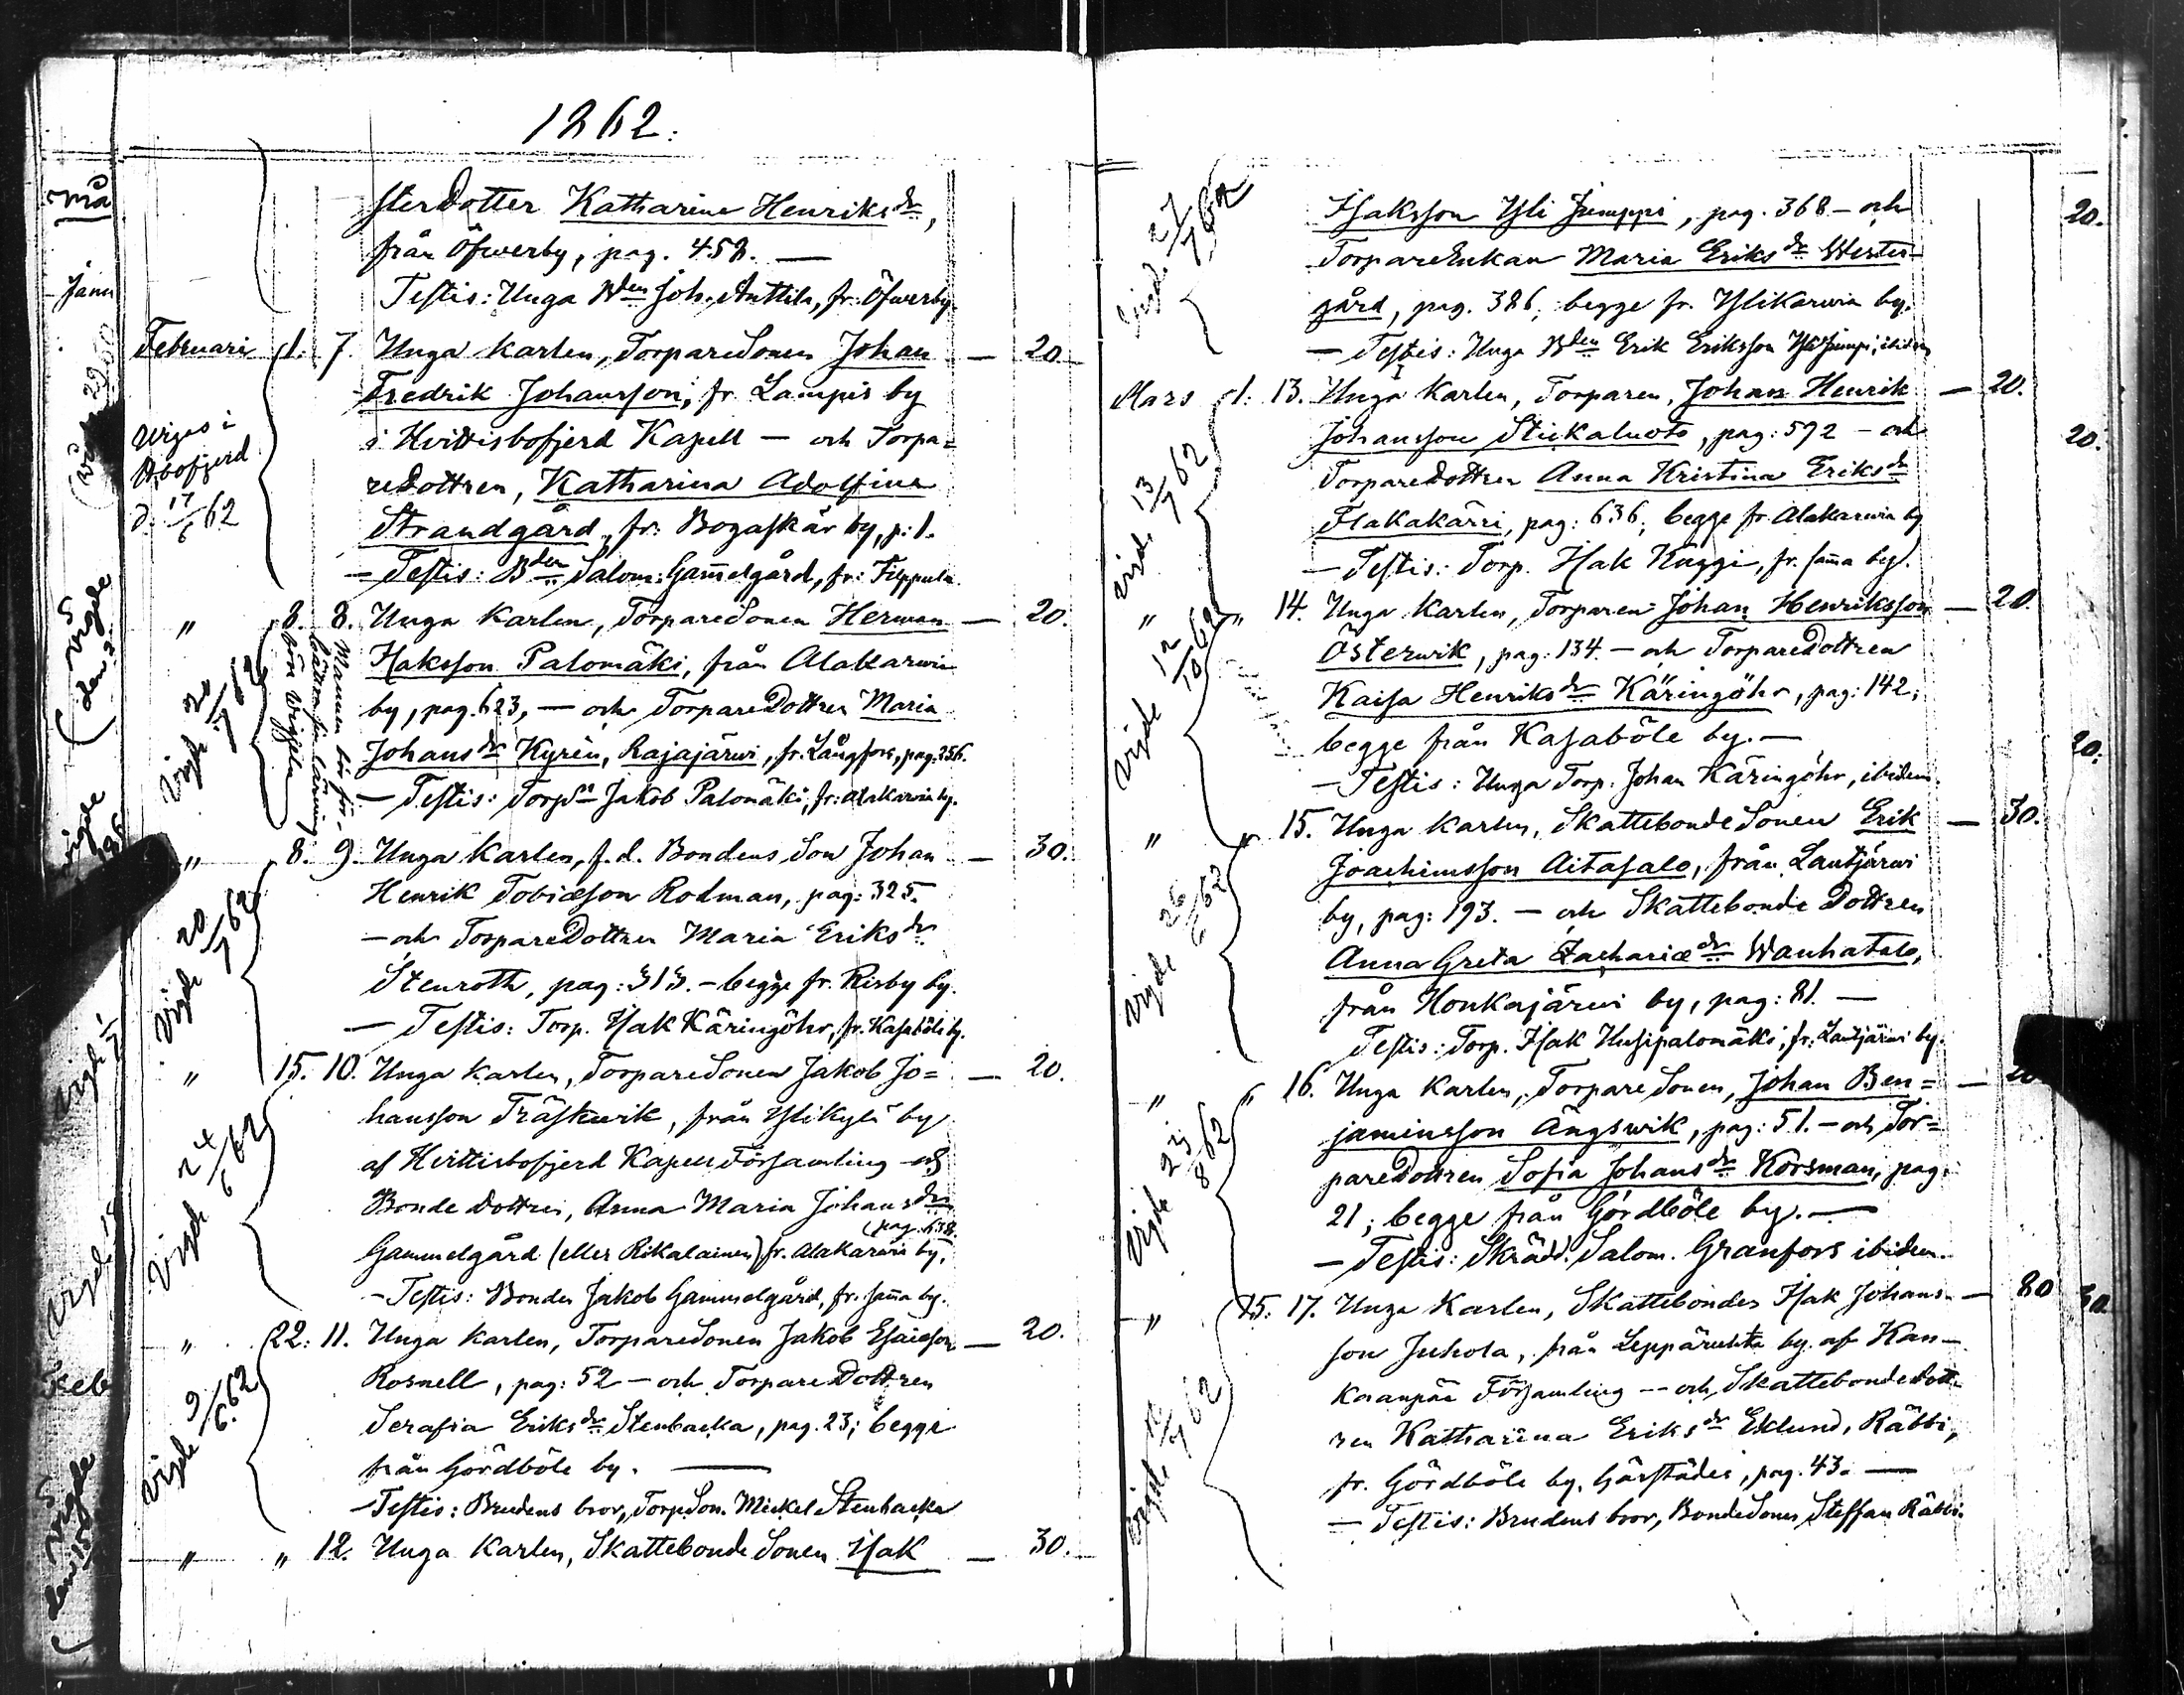 1862.
sterdotter Katharina Henriksdr,
från Öfwerby, pag. 458. —
Testis: Unga Bden Joh. Anttila, fr. Öfwerby.
Februari d. 1. 7. Unga Karlen, TorpareSonen Johan — 20.
Fredrik Johansson, fr. Lampis by
i Hvittisbofjerd Kapell — och Torpa=
redottren, Katharina Adolfina
Strandgård, fr. Bogaskär by, p: 1.
— Testis: Bden Salom: Gam̄elgård, fr: Filppula.
Viges i
Hbofjerd
d. 17/6 62
" 8. 8. Unga Karlen, TorpareSonen Herman — 20.
Isaksson Palomäki, från Alakarwia
by, pag. 623, — och TorpareDottren Maria
Johansdr Kyrén, Rajajärwi, fr. Långfors, pag. 256.
— Testis: Torpn Jakob Palomäki, fr: Alakarwia by.
Vigde 20/7 62
Mannen bör för-
bättra sin läsning
före Wigseln
" 8. 9. Unga Karlen, f.d. Bondens Son Johan — 30.
Henrik Tobiæson Rodman, pag: 325.
— och TorpareDottren Maria Eriksdr
Stenroth, pag: 313. — begge fr. Risby by.
— Testis: Torp. Isak Käringöhr, fr. Kasaböle by.
Vigde 20/7 62
" 15. 10. Unga Karlen, TorpareSonen Jakob Jo= — 20.
hansson Träskwik, från Ylikylä by
af Hvittisbofjerd Kapell Församling och
Bonde dottren, Anna Maria Johansdr
(pag. 638.
Gammelgård (eller Rikalainen) fr. Alakarwia by.
— Testis: Bonden Jakob Gammelgård, fr. sam̄a by.
Vigde 24/6 62
" 22: 11. Unga Karlen, TorpareSonen Jakob Esaiæson — 20.
Rosnell, pag: 52 — och TorpareDottren
Serafia Eriksdr Stenbacka, pag. 23; begge
från Gördböle by. —
— Testis: Brudens bror, TorpSon. Mickel Stenbacka
Vigde 9/6. 62
" " 12. Unga Karlen, Skattebonde Sonen Isak — 30.
Isaksson Yli Jumppi, pag. 368 — och
TorpareEnkan Maria Eriksdr Wester-
gård, pag. 386, begge fr. Ylikarwia by.
— Testis: Unga Bden Erik Eriksson Yli Jumpi, ibidem
Vigd. 27/7 62
Mars d. 1. 13. Unga Karlen, Torparen, Johan Henrik — 20.
Johansson Stickaluoto, pag: 592 — och
TorpareDottren Anna Kristina Eriksdr
Flakakärri, pag: 636, begge fr. Alakarwia by
— Testis: Torp. Isak Kuggi, fr. sam̄a by.
Vigde 13/7 62
" " 14. Unga Karlen, Torparen Johan Henriksson — 20.
Österwik, pag: 134. — och TorpareDottren
Kaisa Henriksdr Käringöhr, pag: 142;
begge från Kasaböle by. —
— Testis: Unga Torp. Johan Käringöhr, ibidem.
Vigde 12/10 62
" " 15. Unga Karlen, Skattebonde Sonen Erik — 30.
Joachimsson Aitasalo, från Lautjärwi
by, pag: 193. — och Skattebonde Dottren
Anna Greta Zachariædr Wanhatalo,
från Honkajärwi by, pag: 81. —
Testis: Torp. Isak Uusipalomäki, fr: Lautjärwi by.
Vigde 26/6 62
" " 16. Unga Karlen, Torpare Sonen, Johan Ben= — 20
jaminsson Ängswik, pag: 51. — och Tor=
pareDottren Sofia Johansdr Korsman, pag.
21; begge från Gördböle by. —
— Testis: Skrädd. Salom. Granfors ibidem.
Vigde 23/8 62
" 15. 17. Unga Karlen, Skattebonden Isak Johans- — 30
son Juhola, från Leppäruhka by af Kan-
kaanpää Församling — och Skattebondedott-
ren Katharina Eriksdr Eklund, Räbbi,
fr. Gördböle by, Gårstädes, pag. 43. —
— Testis: Brudens bror, BondeSonen Steffan Räbbi.
Vigde 12/7 62
20.
20.
20.
30.